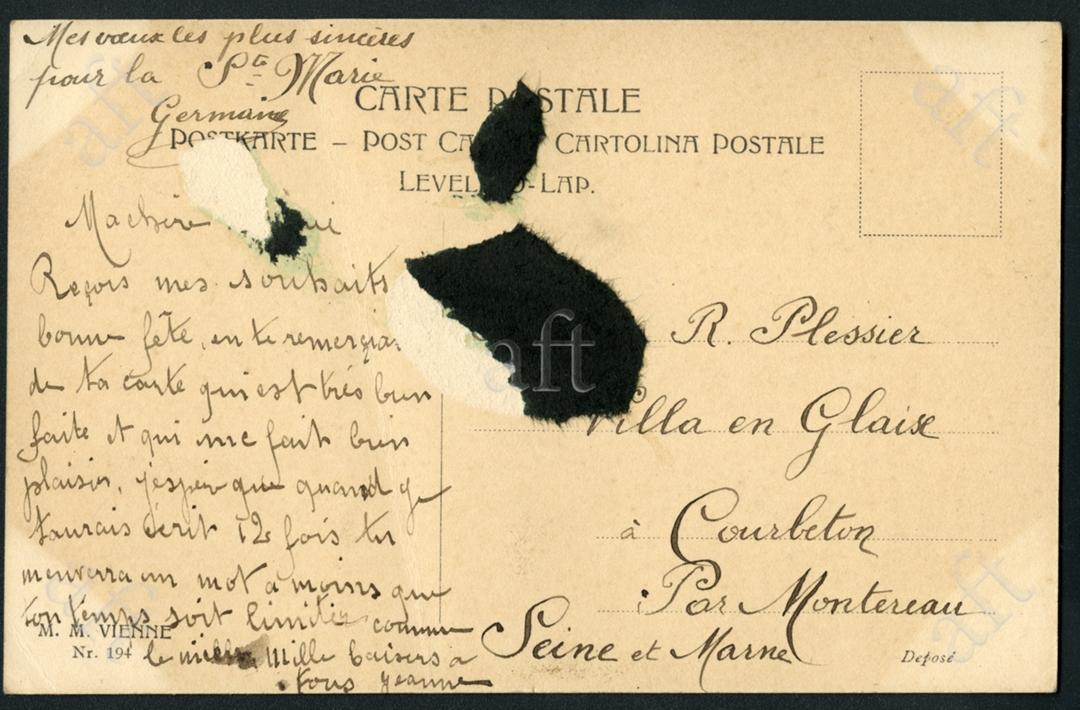 Mes vœux les plus sincères
pour la Ste Marie
Germaine
CARTE POSTALE
POSTKARTE – POST CA CARTOLINA POSTALE
LEVEL -LAP.
Ma chère
Reçois mes souhaits
bonne fête, en te remercia
de ta carte qui est très bien
faite et qui me fait bien
plaisir, j'espère que quand je
taurais écrit 12 fois tu
menverra un mot a moins que
ton temps soit limitée comme
le mien, Mille baisers a
tous Jeanne
M. M. VIENNE
Nr. 194
R. Plessier
Villa en Glaise
à Courbeton
Par Montereau
Seine et Marne
Deposé
aft
aft
aft
aft
aft